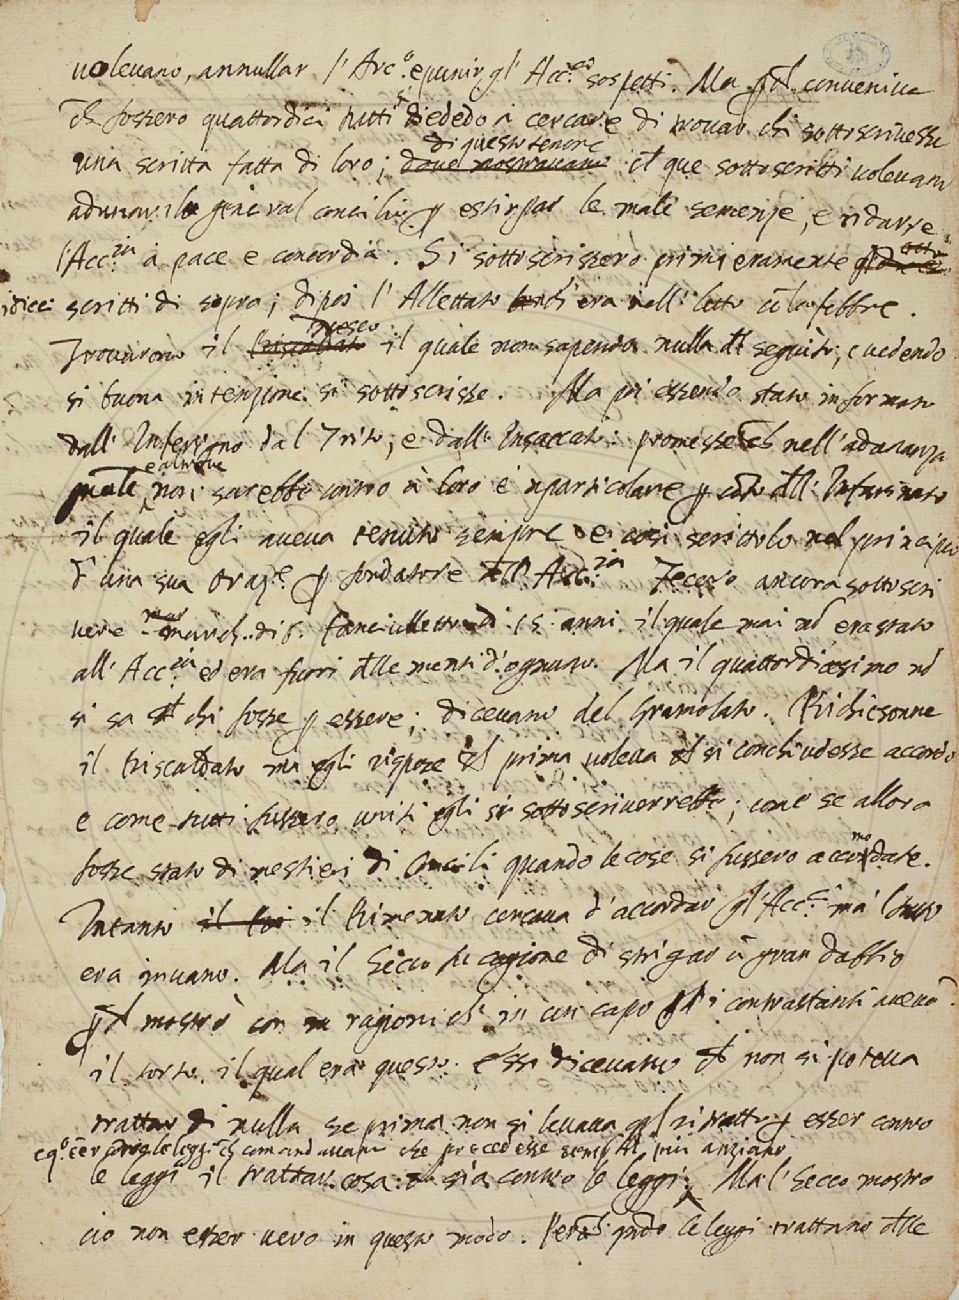 volevano, annullar l'Arc.º e punir gl' Acc.ci sospetti. Ma conveniva
ch fossero quattordici tutti si diedero à cercare di trovar chi sottoscrivesse
di questo tenore
una scritta fatta di loro; dove mostravano ch que sottoscritti volevano
adunar il general concilio p estirpar le male semenze, e ridurre
l'Acc.ia à pace e concordia. Si sottoscrissero primieramente
scritti di sopra; dipoi l'Allettato era nell' letto cō la febbre.
Trovarono il il quale non sapendo nulla dl seguito, e vedendo
si buona intenzione si sottoscrisse. Ma poi essendo stato informato
dall' Inferigno dal Trito, e dall' Insaccato: promesse ch nell'adunanza
non sarebbe contro à loro e nparticolare p cōto dll' Infarinato
il quale egli aveva tenuto sempre e cosi scrittolo nel principio
d' una sua Oraz.e p fondatore dll' Acc.ia Fecero ancora sottoscri
vere march. di fanciulletto di 15 anni il quale mai nō era stato
all' Acc.ia ed era fuori dlle menti d'ognuno. Ma il quattordicesimo nō
si sa chi fosse p essere; dicevano del Gramolato. Richiesonne
il Riscaldato ma egli rispose ch prima voleva ch si conchiudesse accordo
e come tutti fussero uniti egli si sottoscriverrebbe; come se allora
fosse stato di mestieri di Concili quando le cose si fussero accomodate.
Intanto il il Rimenato cercava d'accordar gl'Acc.ci ma l tutto
era invano. Ma il Secco fu cagione di strigar ū gran dubbio
mostrò con ragioni ch in un capo i contrattanti avevā
il torto, il qual era questo. essi dicevano ch non si poteva
trattar di nulla se prima non si levava p esser contro
le leggi ch comandavano che precedesse sempre il più anziano
le leggi il trattar cosa ch sia contro le leggi. Ma l' Secco mostrò
ciò non esser vero in questo modo. le leggi trattano dlle